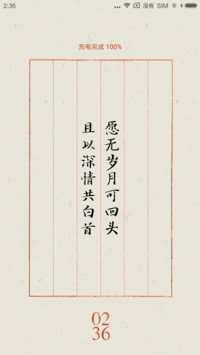 2:36
... 没有 SIM
充电完成 100%
愿无岁月可回头
且以深情共白首
02
36